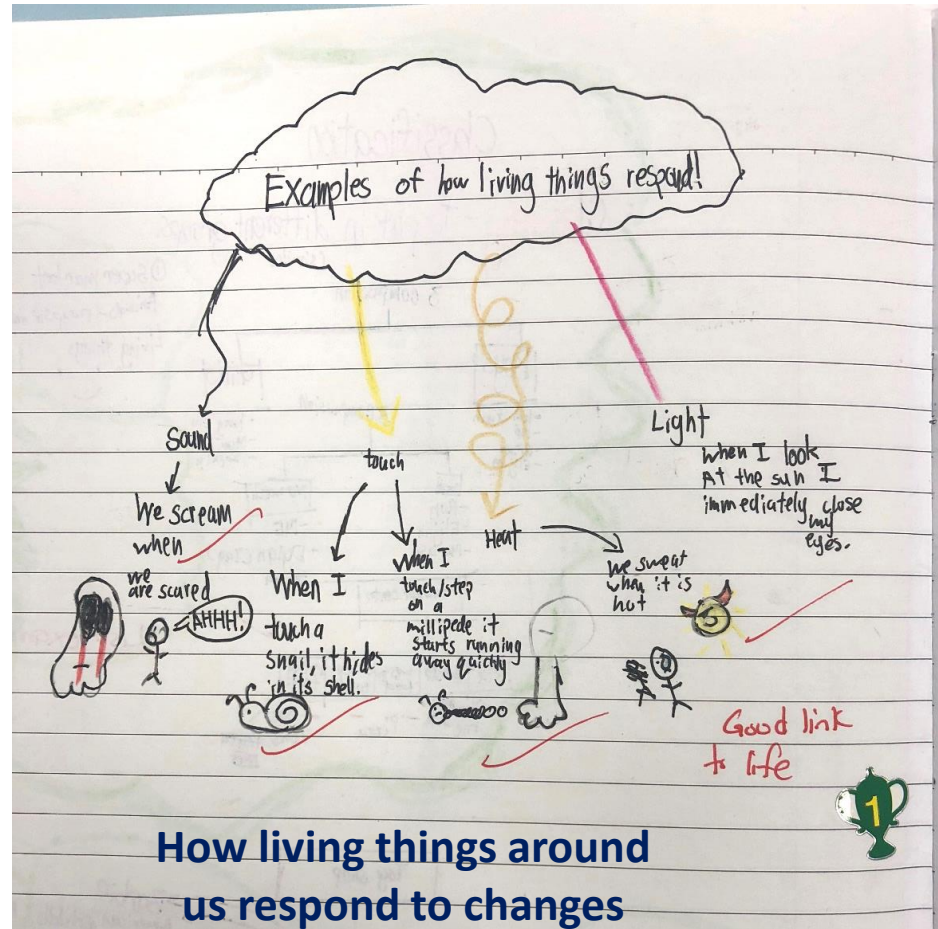 Examples of how living things respond!
Sound
We scream
when
we
are scared
AHHH!
touch
When I
touch a
snail, it hides
in its shell.
When I
touch/step
on a
millipede it
starts running
away quickly
Heat
We sweat
when it is
hot
Light
when I look
At the sun I
immediately close
my
eyes.
Good link
to life
1
How living things around
us respond to changes